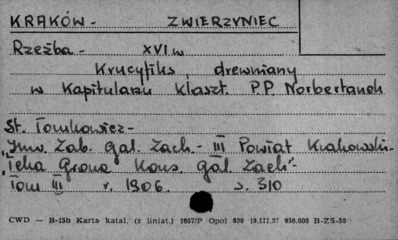 KRAKÓW - ZWIERZYNIEC
Rzeźba - XVI w
Krucyfiks drewniany
w Kapitularzu klaszt. P.P. Norbertanek
St. Tomkowicz -
"Inw. Zab. Gal. Zach. - III Powiat Krakowski -
"Teka Grona Kons. Gal. Zach"
Tom III r. 1906. s. 310
CWD — B-15b Karta katal. (z liniat.) 1657/P Opol 800 19.III.57 950.000 B-ZS-50